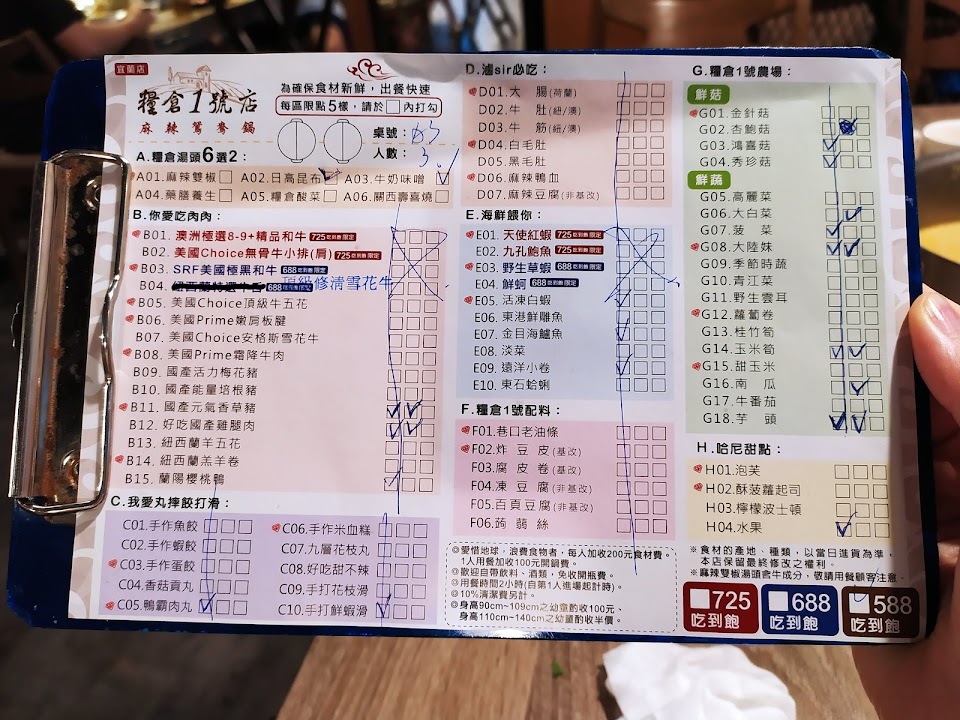 宜蘭店
糧倉1號店
麻辣鴛鴦鍋
為確保食材新鮮，出餐快速
每區限點5樣，請於□內打勾
桌號：
人數：3
A.糧倉湯頭6選2：
A01.麻辣雙椒□ A02.日高昆布□ A03.牛奶味噌□
A04.藥膳養生□ A05.糧倉酸菜□ A06.關西壽喜燒□
B.你愛吃肉肉：
B01.澳洲極選8-9+精品和牛 725吃到飽 限定
B02.美國Choice無骨牛小排(肩) 725吃到飽 限定
B03.SRF美國極黑和牛 688吃到飽 限定
B04. 688吃到飽 限定 頂級修清雪花牛
B05.美國Choice頂級牛五花
B06.美國Prime嫩肩板腱
B07.美國Choice安格斯雪花牛
B08.美國Prime霜降牛肉
B09.國產活力梅花豬
B10.國產能量培根豬
B11.國產元氣香草豬
B12.好吃國產雞腿肉
B13.紐西蘭羊五花
B14.紐西蘭羔羊卷
B15.蘭陽櫻桃鴨
C.我愛丸摔餃打滑：
C01.手作魚餃
C02.手作蝦餃
C03.手作蛋餃
C04.香菇貢丸
C05.鴨霸肉丸
C06.手作米血糕
C07.九層花枝丸
C08.好吃甜不辣
C09.手打花枝滑
C10.手打鮮蝦滑
D.滷sir必吃：
D01.大腸(荷蘭)
D02.牛肚(紐/澳)
D03.牛筋(紐/澳)
D04.白毛肚
D05.黑毛肚
D06.麻辣鴨血
D07.麻辣豆腐(非基改)
E.海鮮餵你：
E01.天使紅蝦 725吃到飽 限定
E02.九孔鮑魚 725吃到飽 限定
E03.野生草蝦 688吃到飽 限定
E04.鮮蚵 688吃到飽 限定
E05.活凍白蝦
E06.東港鮮雕魚
E07.金目海鱸魚
E08.淡菜
E09.遠洋小卷
E10.東石蛤蜊
F.糧倉1號配料：
F01.巷口老油條
F02.炸豆皮(基改)
F03.腐皮卷(基改)
F04.凍豆腐(非基改)
F05.百頁豆腐(非基改)
F06.蒟蒻絲
◎愛惜地球，浪費食物者，每人加收200元食材費。
1人用餐加收100元開鍋費。
◎歡迎自帶飲料、酒類，免收開瓶費。
◎用餐時間2小時(自第1人進場起計時)。
◎10%清潔費另計。
◎身高90cm~109cm之幼童酌收100元、
身高110cm~140cm之幼童酌收半價。
G.糧倉1號農場：
鮮菇
G01.金針菇
G02.杏鮑菇
G03.鴻喜菇
G04.秀珍菇
鮮蔬
G05.高麗菜
G06.大白菜
G07.菠菜
G08.大陸妹
G09.季節時蔬
G10.青江菜
G11.野生雲耳
G12.蘿蔔卷
G13.桂竹筍
G14.玉米筍
G15.甜玉米
G16.南瓜
G17.牛番茄
G18.芋頭
H.哈尼甜點：
H01.泡芙
H02.酥菠蘿起司
H03.檸檬波士頓
H04.水果
※食材的產地、種類，以當日進貨為準，
本店保留最終修改之權利。
※麻辣雙椒湯頭含牛成分，敬請用餐顧客注意。
□725吃到飽
□688吃到飽
□588吃到飽